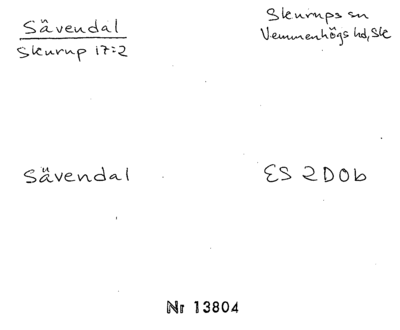 Sävendal
Skurup 17:2
Skurups sn
Vemmenhögs hd, Sk
Sävendal
ES 2D0b
Nr 13804